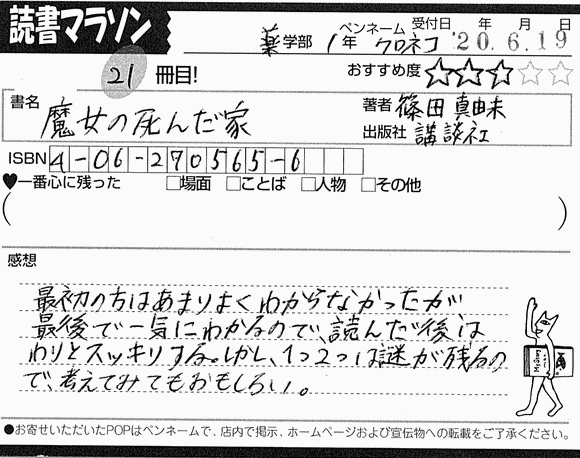 読書マラソン
薬学部 1年 ペンネーム クロネコ 受付日 '20年6月19日
21冊目!
おすすめ度 ★★★☆☆
書名 魔女の死んだ家
著者 篠田真由美
出版社 講談社
ISBN 4-06-270565-6
♥一番心に残った □場面 □ことば □人物 □その他
( )
感想
最初の方はあまりよくわからなかったが
最後で一気にわかるので、読んだ後は
わりとスッキリする。しかし、1つ2つは謎が残るの
で、考えてみてもおもしろい。
●お寄せいただいたPOPはペンネームで、店内で掲示、ホームページおよび宣伝物への転載をご了承ください。